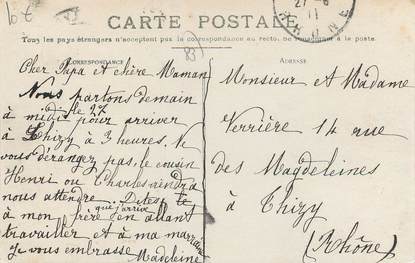 10 €
CARTE POSTALE
27-6
11
RHONE
Tous les pays étrangers n'acceptent pas la correspondance au recto, se renseigner à la poste.
83
CORRESPONDANCE
ADRESSE
Cher Papa et chère Maman
Nous partons demain
le 27
à midi pour arriver
à Thizy à 3 heures. Ne
vous dérangez pas, le cousin
Henri ou Charles viendra
nous attendre. Dites le
que j'arrive
à mon frère en allant
travailler et à ma marraine
Je vous embrasse Madeleine
Monsieur et Madame
Verrière 14 rue
des Magdeleines
à Thizy
(Rhône)